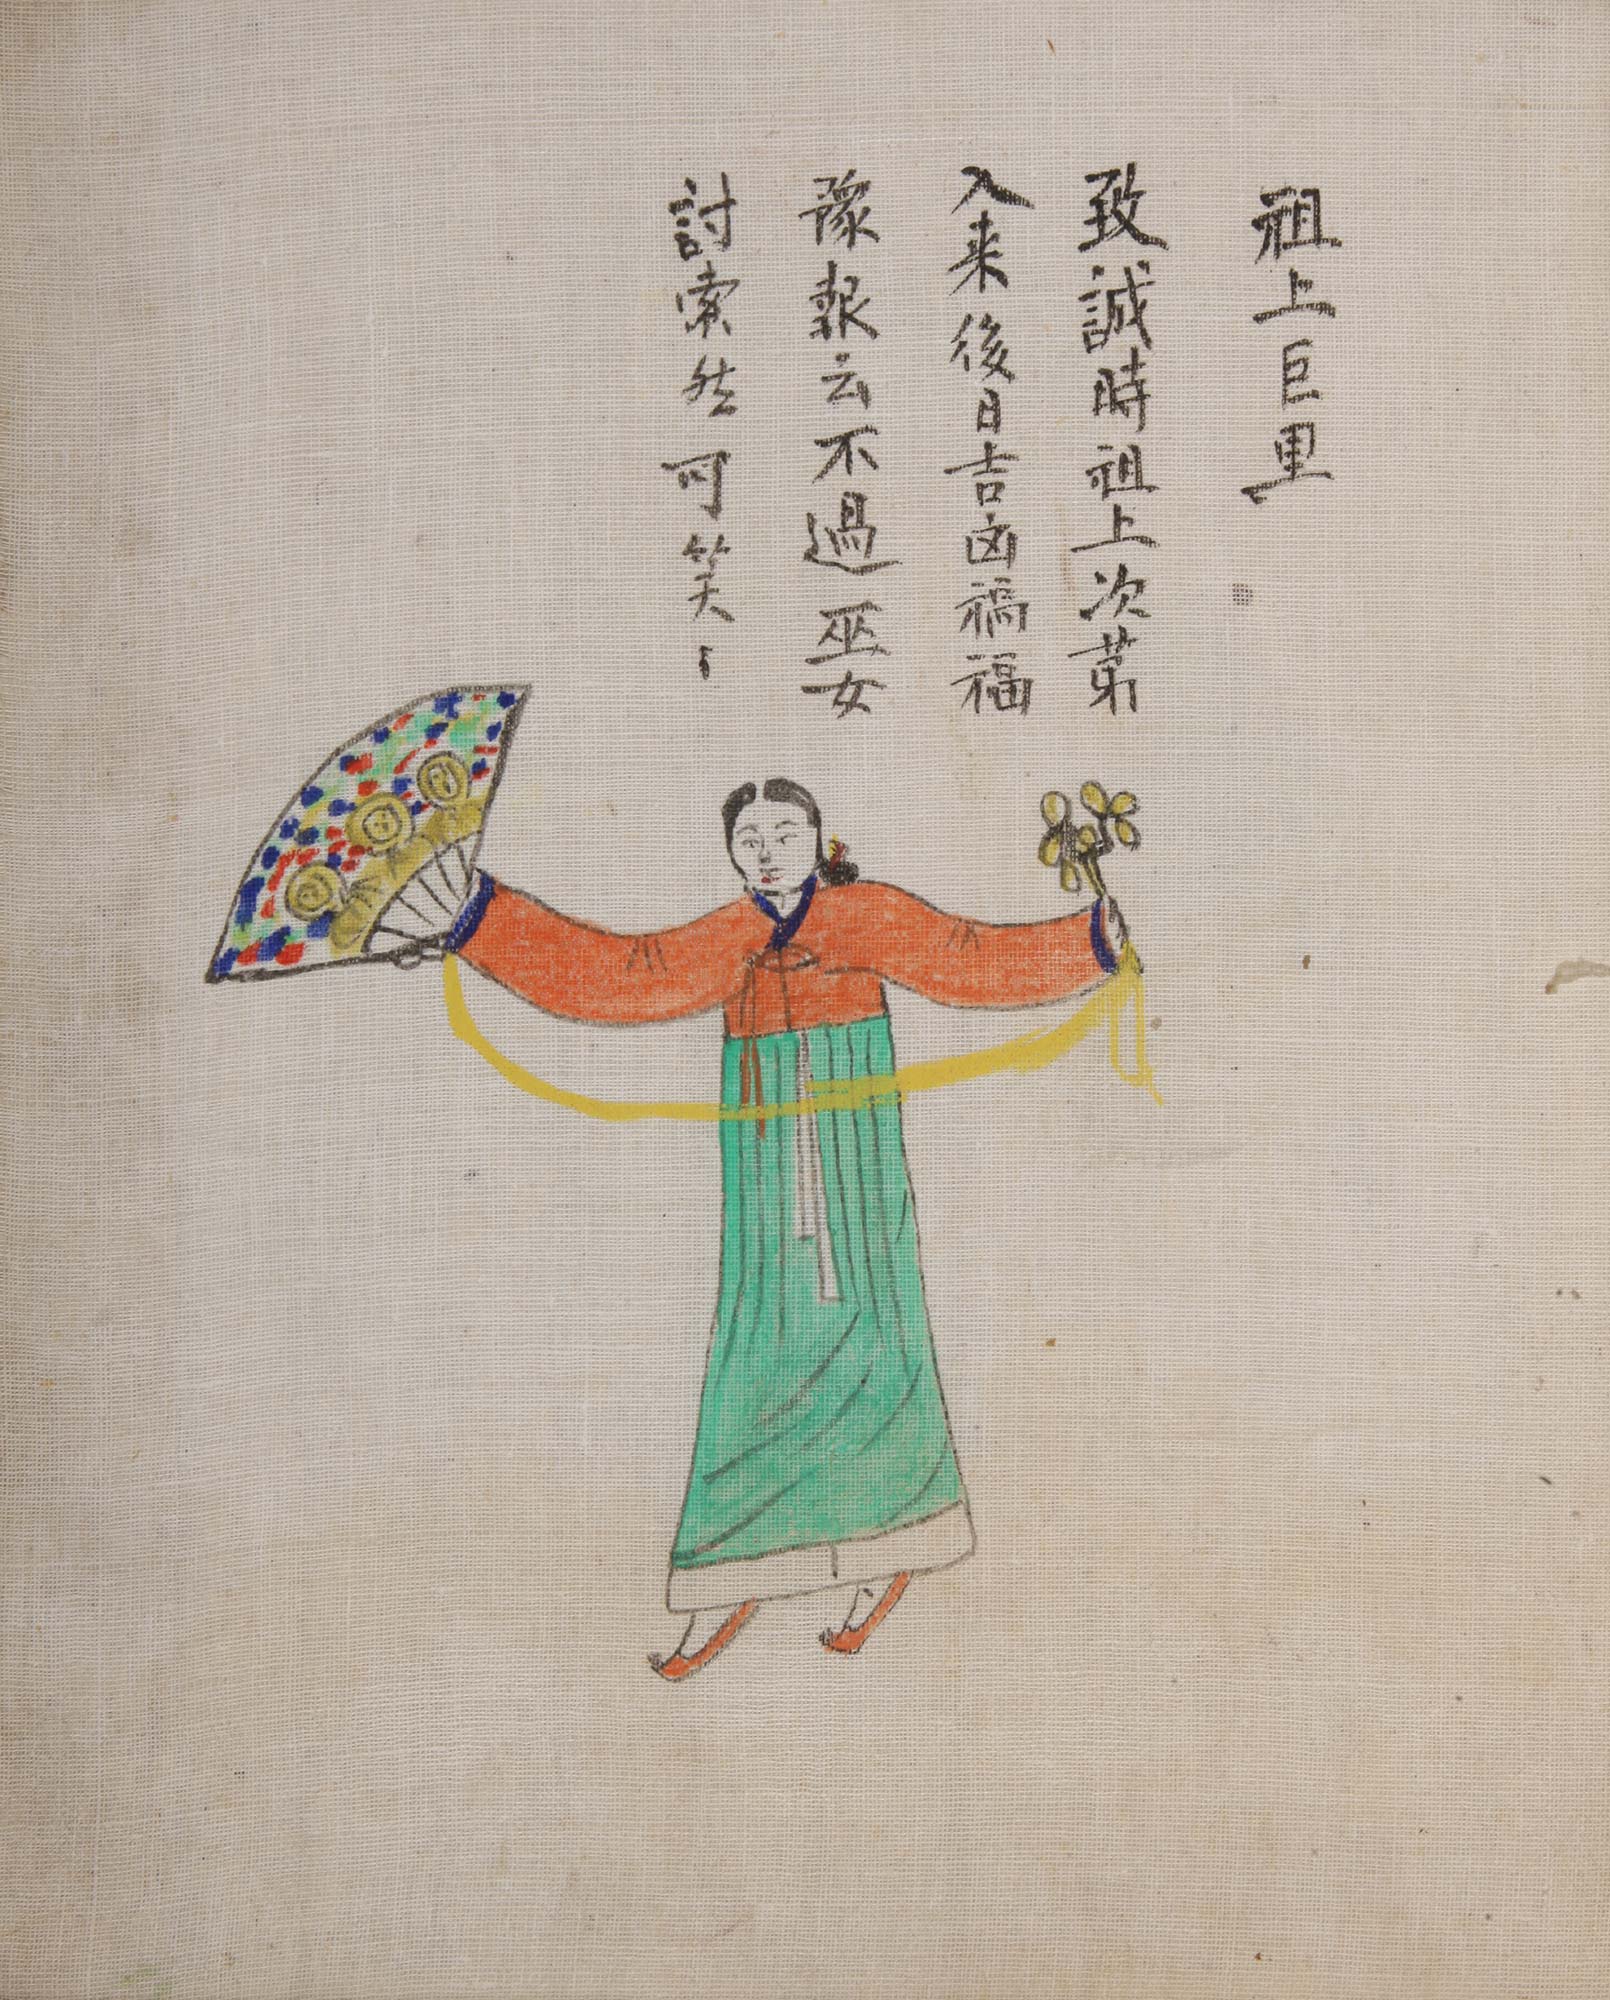 祖上巨里
致誠時祖上次第
入来後日吉凶禍福
豫報云不過巫女
討索然可笑〻